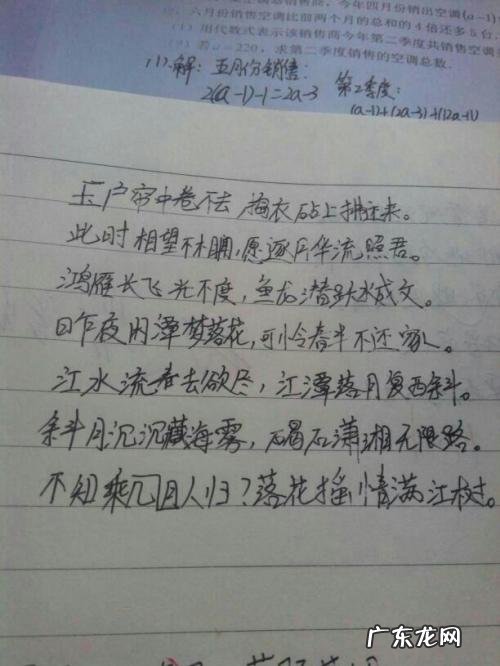 今年四月份销出空调(a-1)
六月份销售空调比前两个月的总和的4倍还多5台.
(1) 用代数式表示该销售商今年第二季度共销售空调
(2) 若a=220, 求第二季度销售的空调总数.
(1).解: 五月份销售:
2(a-1)-1=2a-3 第2季度:
(a-1)+(2a-3)+(12a-11)
玉户帘中卷不去,捣衣砧上拂还来。
此时相望不相闻,愿逐月华流照君。
鸿雁长飞光不度,鱼龙潜跃水成文。
昨夜闲潭梦落花,可怜春半不还家。
江水流春去欲尽,江潭落月复西斜。
斜月沉沉藏海雾,碣石潇湘无限路。
不知乘几人归?落花摇情满江树。
广东龙网